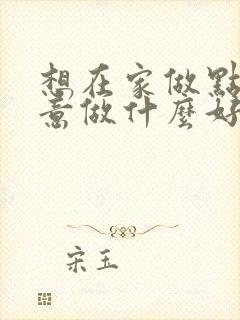 想在家做點
意做什麼好
宋玉